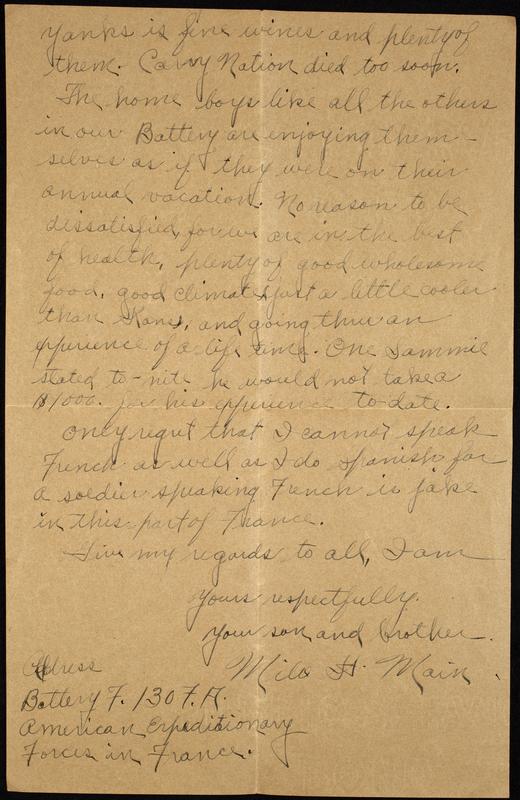 Yanks is fine wines and plenty of
them. Carry Nation died too soon.
The home boys like all the others
in our Battery are enjoying them-
selves as if they were on their
annual vacation. No reason to be
dissatisfied, for we are in the best
of health, plenty of good wholesome
food, good climate, just a little cooler
than Kans, and going thru an
experience of a life time. One Sammie
stated to-nite he would not take a
$1000. for his experience to-date.
Only regret that I cannot speak
French as well as I do Spanish for
a soldier speaking French is jake
in this part of France.
Give my regards to all, I am
Yours respectfully.
Your son and brother.
Milo H. Main.
Address
Battery F. 130 F.A.
American Expeditionary
Forces in France.